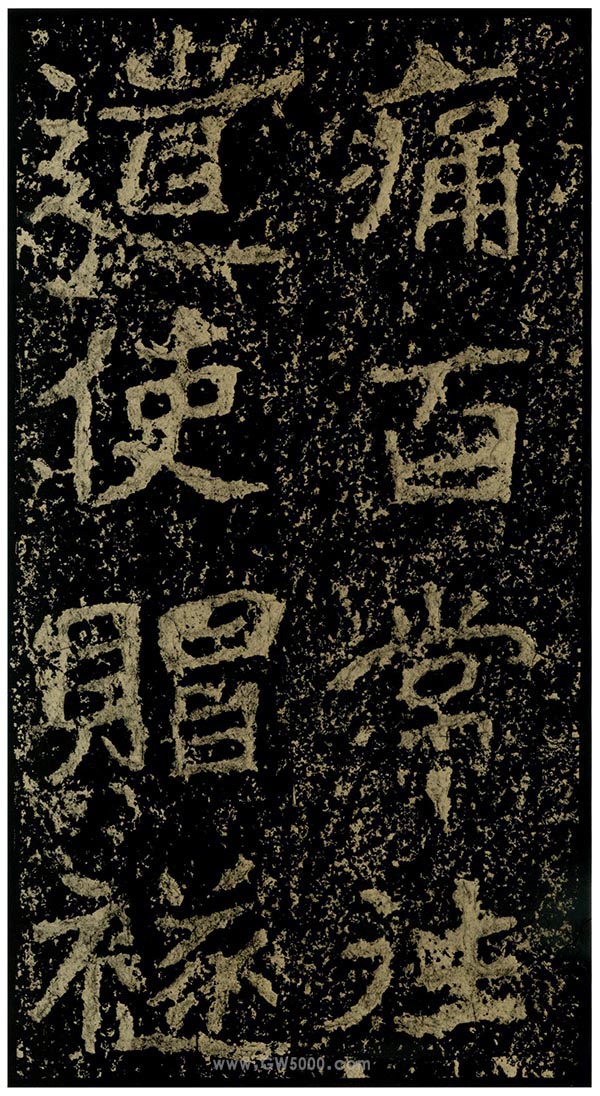 痛百常往
遣使賵襚
www.GW5000.com